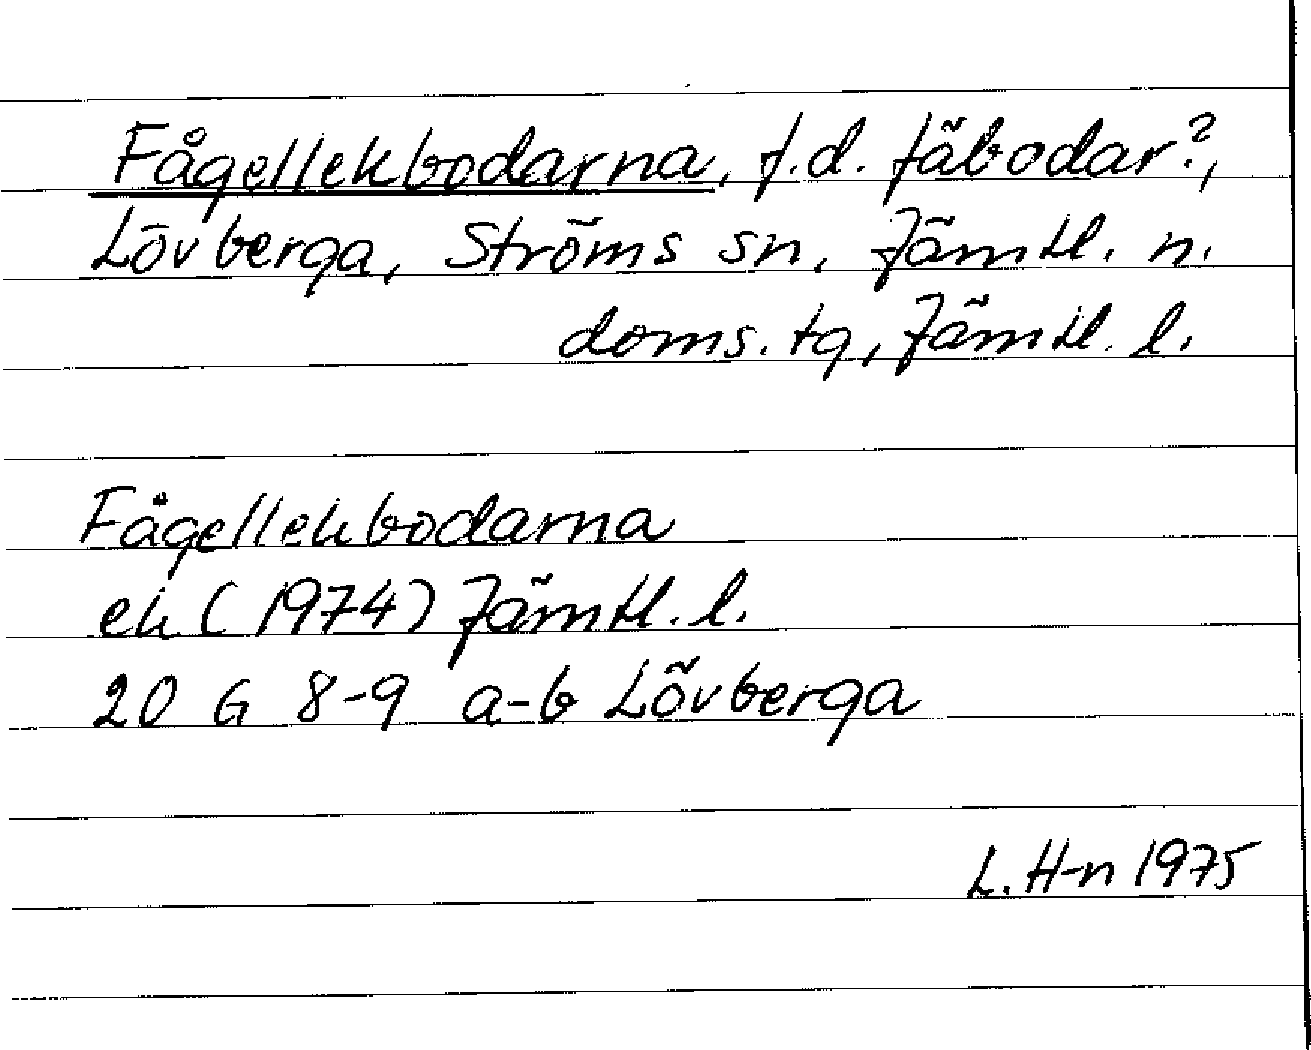 Fågellekbodarna, f.d. fäbodar?,
Lövberga, Ströms sn, Jämtl. n.
doms. tg, Jämtl. l.
Fågellekbodarna
ek (1974) Jämtl. l.
20 G 8-9 a-b Lövberga
L. H-n 1975